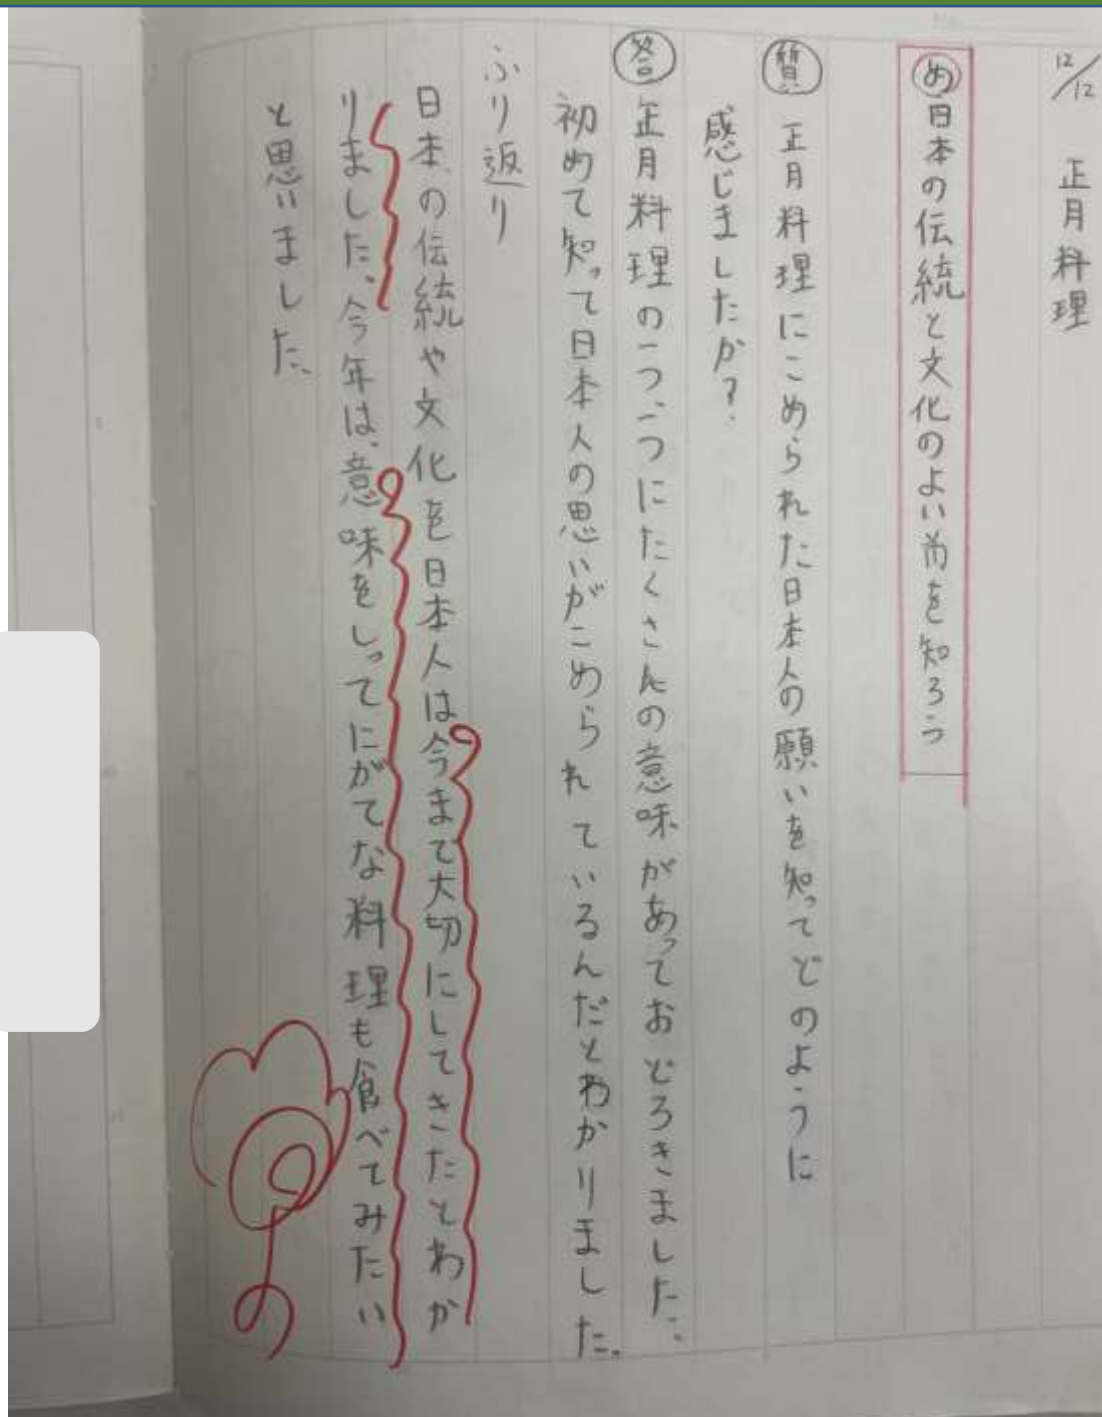 12/12 正月料理
め 日本の伝統と文化のよい面を知ろう
質 正月料理にこめられた日本人の願いを知ってどのように
感じましたか?
答 正月料理の一つ一つにたくさんの意味があっておどろきました。
初めて知って日本人の思いがこめられているんだとわかりました。
ふり返り
日本の伝統や文化を日本人は今まで大切にしてきたとわか
りました。今年は、意味をしってにがてな料理も食べてみたい
と思いました。